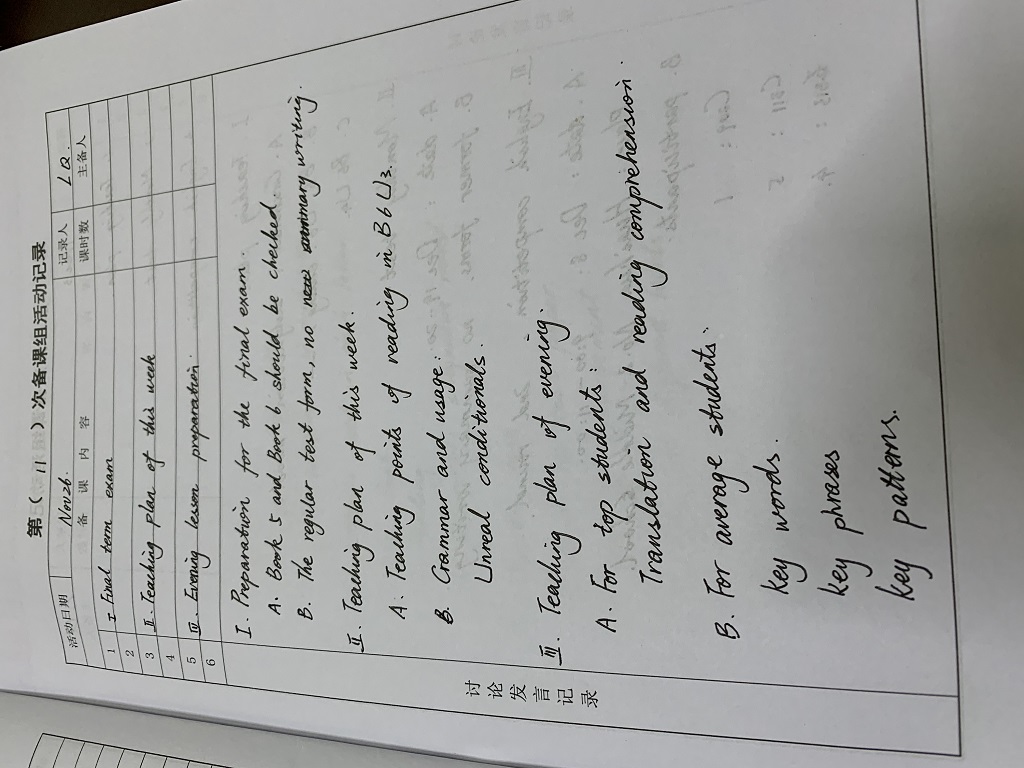 第( 11 )次备课组活动记录
活动日期 Nov26. 记录人 LQ.
备 课 内 容 课时数 主备人
1 I. final term exam
2
3 II. Teaching plan of this week
4
5 III. Evening lesson preparation.
6
讨论发言记录
I. Preparation for the final exam.
A. Book 5 and Book 6 should be checked
B. The regular test form, no need summary writing.
II. Teaching plan of this week.
A. Teaching points of reading in B6U3.
B. Grammar and usage:
Unreal conditionals.
III. Teaching plan of evening.
A. For top students:
Translation and reading comprehension.
B. For average students:
key words.
key phreses
key pattens.